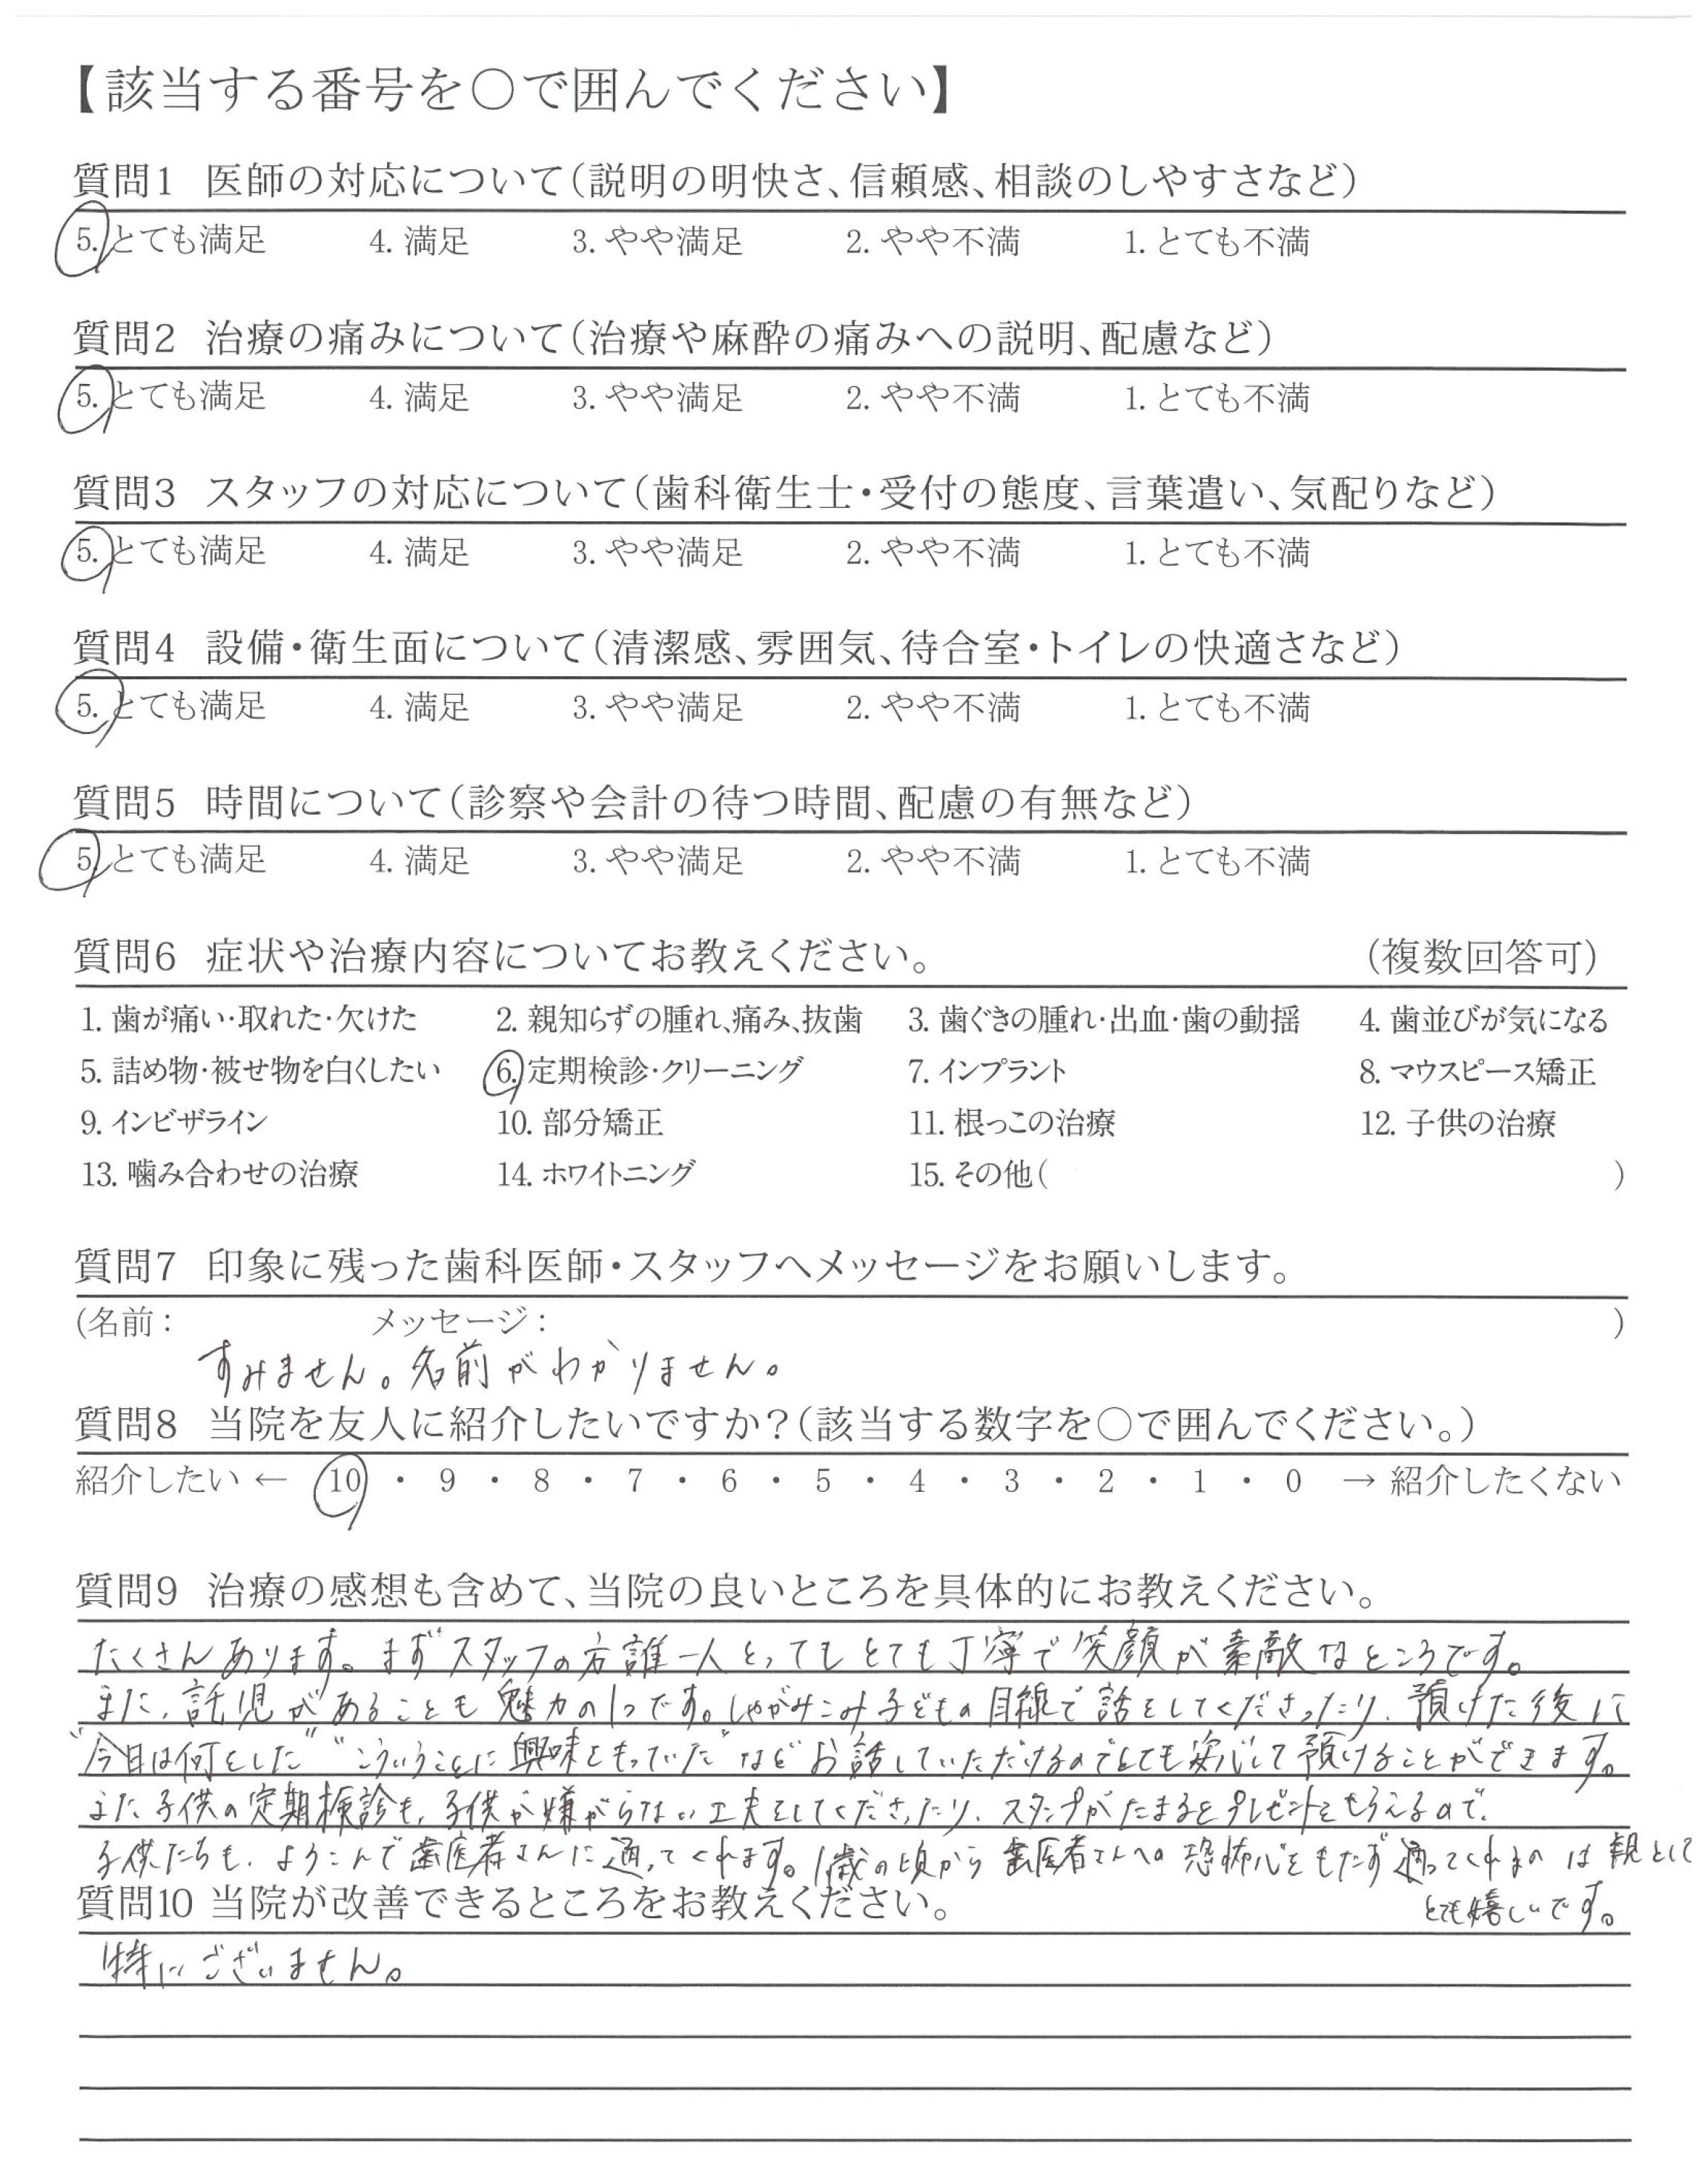 【該当する番号を○で囲んでください】
質問1 医師の対応について(説明の明快さ、信頼感、相談のしやすさなど)
5. とても満足 4. 満足 3. やや満足 2. やや不満 1. とても不満
質問2 治療の痛みについて(治療や麻酔の痛みへの説明、配慮など)
5. とても満足 4. 満足 3. やや満足 2. やや不満 1. とても不満
質問3 スタッフの対応について(歯科衛生士・受付の態度、言葉遣い、気配りなど)
5. とても満足 4. 満足 3. やや満足 2. やや不満 1. とても不満
質問4 設備・衛生面について(清潔感、雰囲気、待合室・トイレの快適さなど)
5. とても満足 4. 満足 3. やや満足 2. やや不満 1. とても不満
質問5 時間について(診察や会計の待つ時間、配慮の有無など)
5. とても満足 4. 満足 3. やや満足 2. やや不満 1. とても不満
質問6 症状や治療内容についてお教えください。 (複数回答可)
1. 歯が痛い・取れた・欠けた 2. 親知らずの腫れ、痛み、抜歯 3. 歯ぐきの腫れ・出血・歯の動揺 4. 歯並びが気になる
5. 詰め物・被せ物を白くしたい 6. 定期検診・クリーニング 7. インプラント 8. マウスピース矯正
9. インビザライン 10. 部分矯正 11. 根っこの治療 12. 子供の治療
13. 噛み合わせの治療 14. ホワイトニング 15. その他( )
質問7 印象に残った歯科医師・スタッフへメッセージをお願いします。
(名前： メッセージ： )
すみません。名前がわかりません。
質問8 当院を友人に紹介したいですか？(該当する数字を○で囲んでください。)
紹介したい ← 10 ・ 9 ・ 8 ・ 7 ・ 6 ・ 5 ・ 4 ・ 3 ・ 2 ・ 1 ・ 0 → 紹介したくない
質問9 治療の感想も含めて、当院の良いところを具体的にお教えください。
たくさんあります。まずスタッフの方誰一人とってもとても丁寧で笑顔が素敵なところです。
また、託児があることも魅力の1つです。しゃがみこみ子どもの目線で話をしてくださったり、預けた後に
"今日は何をした" "こういうことに興味をもっていた"などお話していただけるのでとても安心して預けることができます。
また子供の定期検診も、子供が嫌がらない工夫をしてくださったり、スタンプがたまるとプレゼントをもらえるので、
子供たちも、よろこんで歯医者さんに通ってくれます。1歳の頃から歯医者さんへの恐怖心をもたず通ってくれるのは親として
とても嬉しいです。
質問10 当院が改善できるところをお教えください。
特にございません。